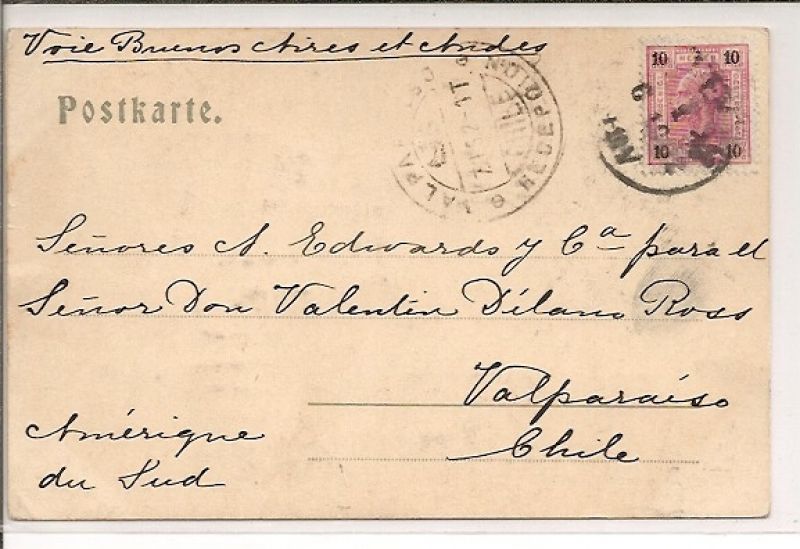 Voie Buenos Aires et Andes
Postkarte.
10 10
10 10
VALPARAISO
CHILE
Señores A. Edwards y Cª para el
Señor Don Valentin Délano Ross
Valparaíso
Chile
Amérique
du Sud